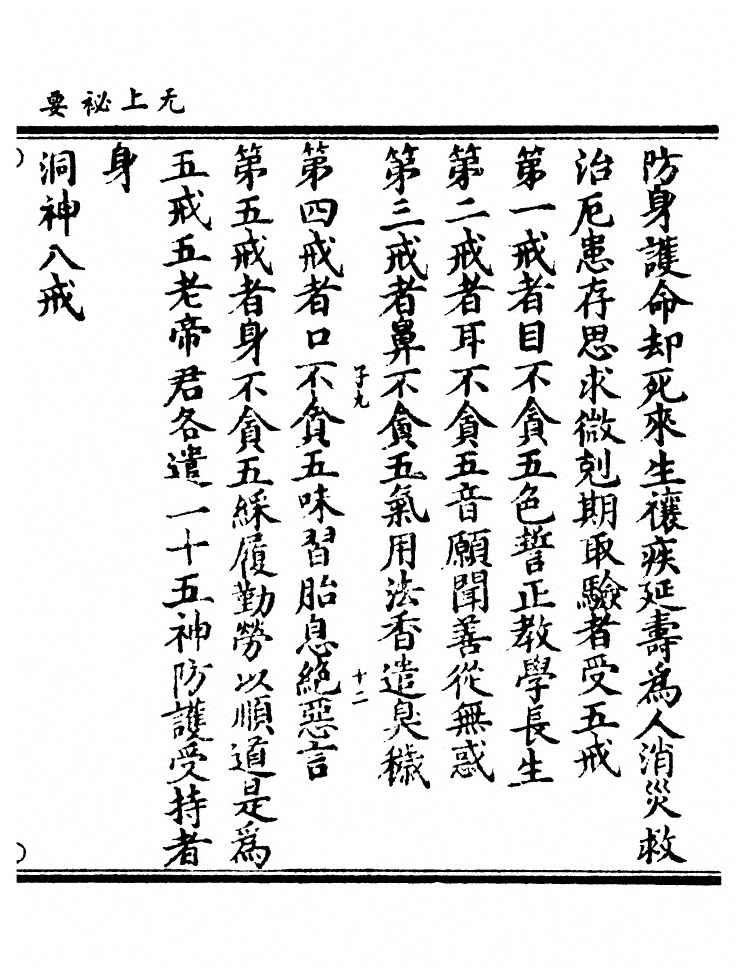 无上祕要
防身護命却死來生禳疾延壽為人消災救
治厄患存思求微剋期取驗者受五戒
第一戒者目不貪五色誓正教學長生
第二戒者耳不貪五音願聞善從無惑
第三戒者鼻不貪五氣用法香遣臭穢
子九
十二
第四戒者口不貪五味習胎息絶惡言
第五戒者身不貪五綵履勤勞以順道是為
五戒五老帝君各遣一十五神防護受持者
身
洞神八戒